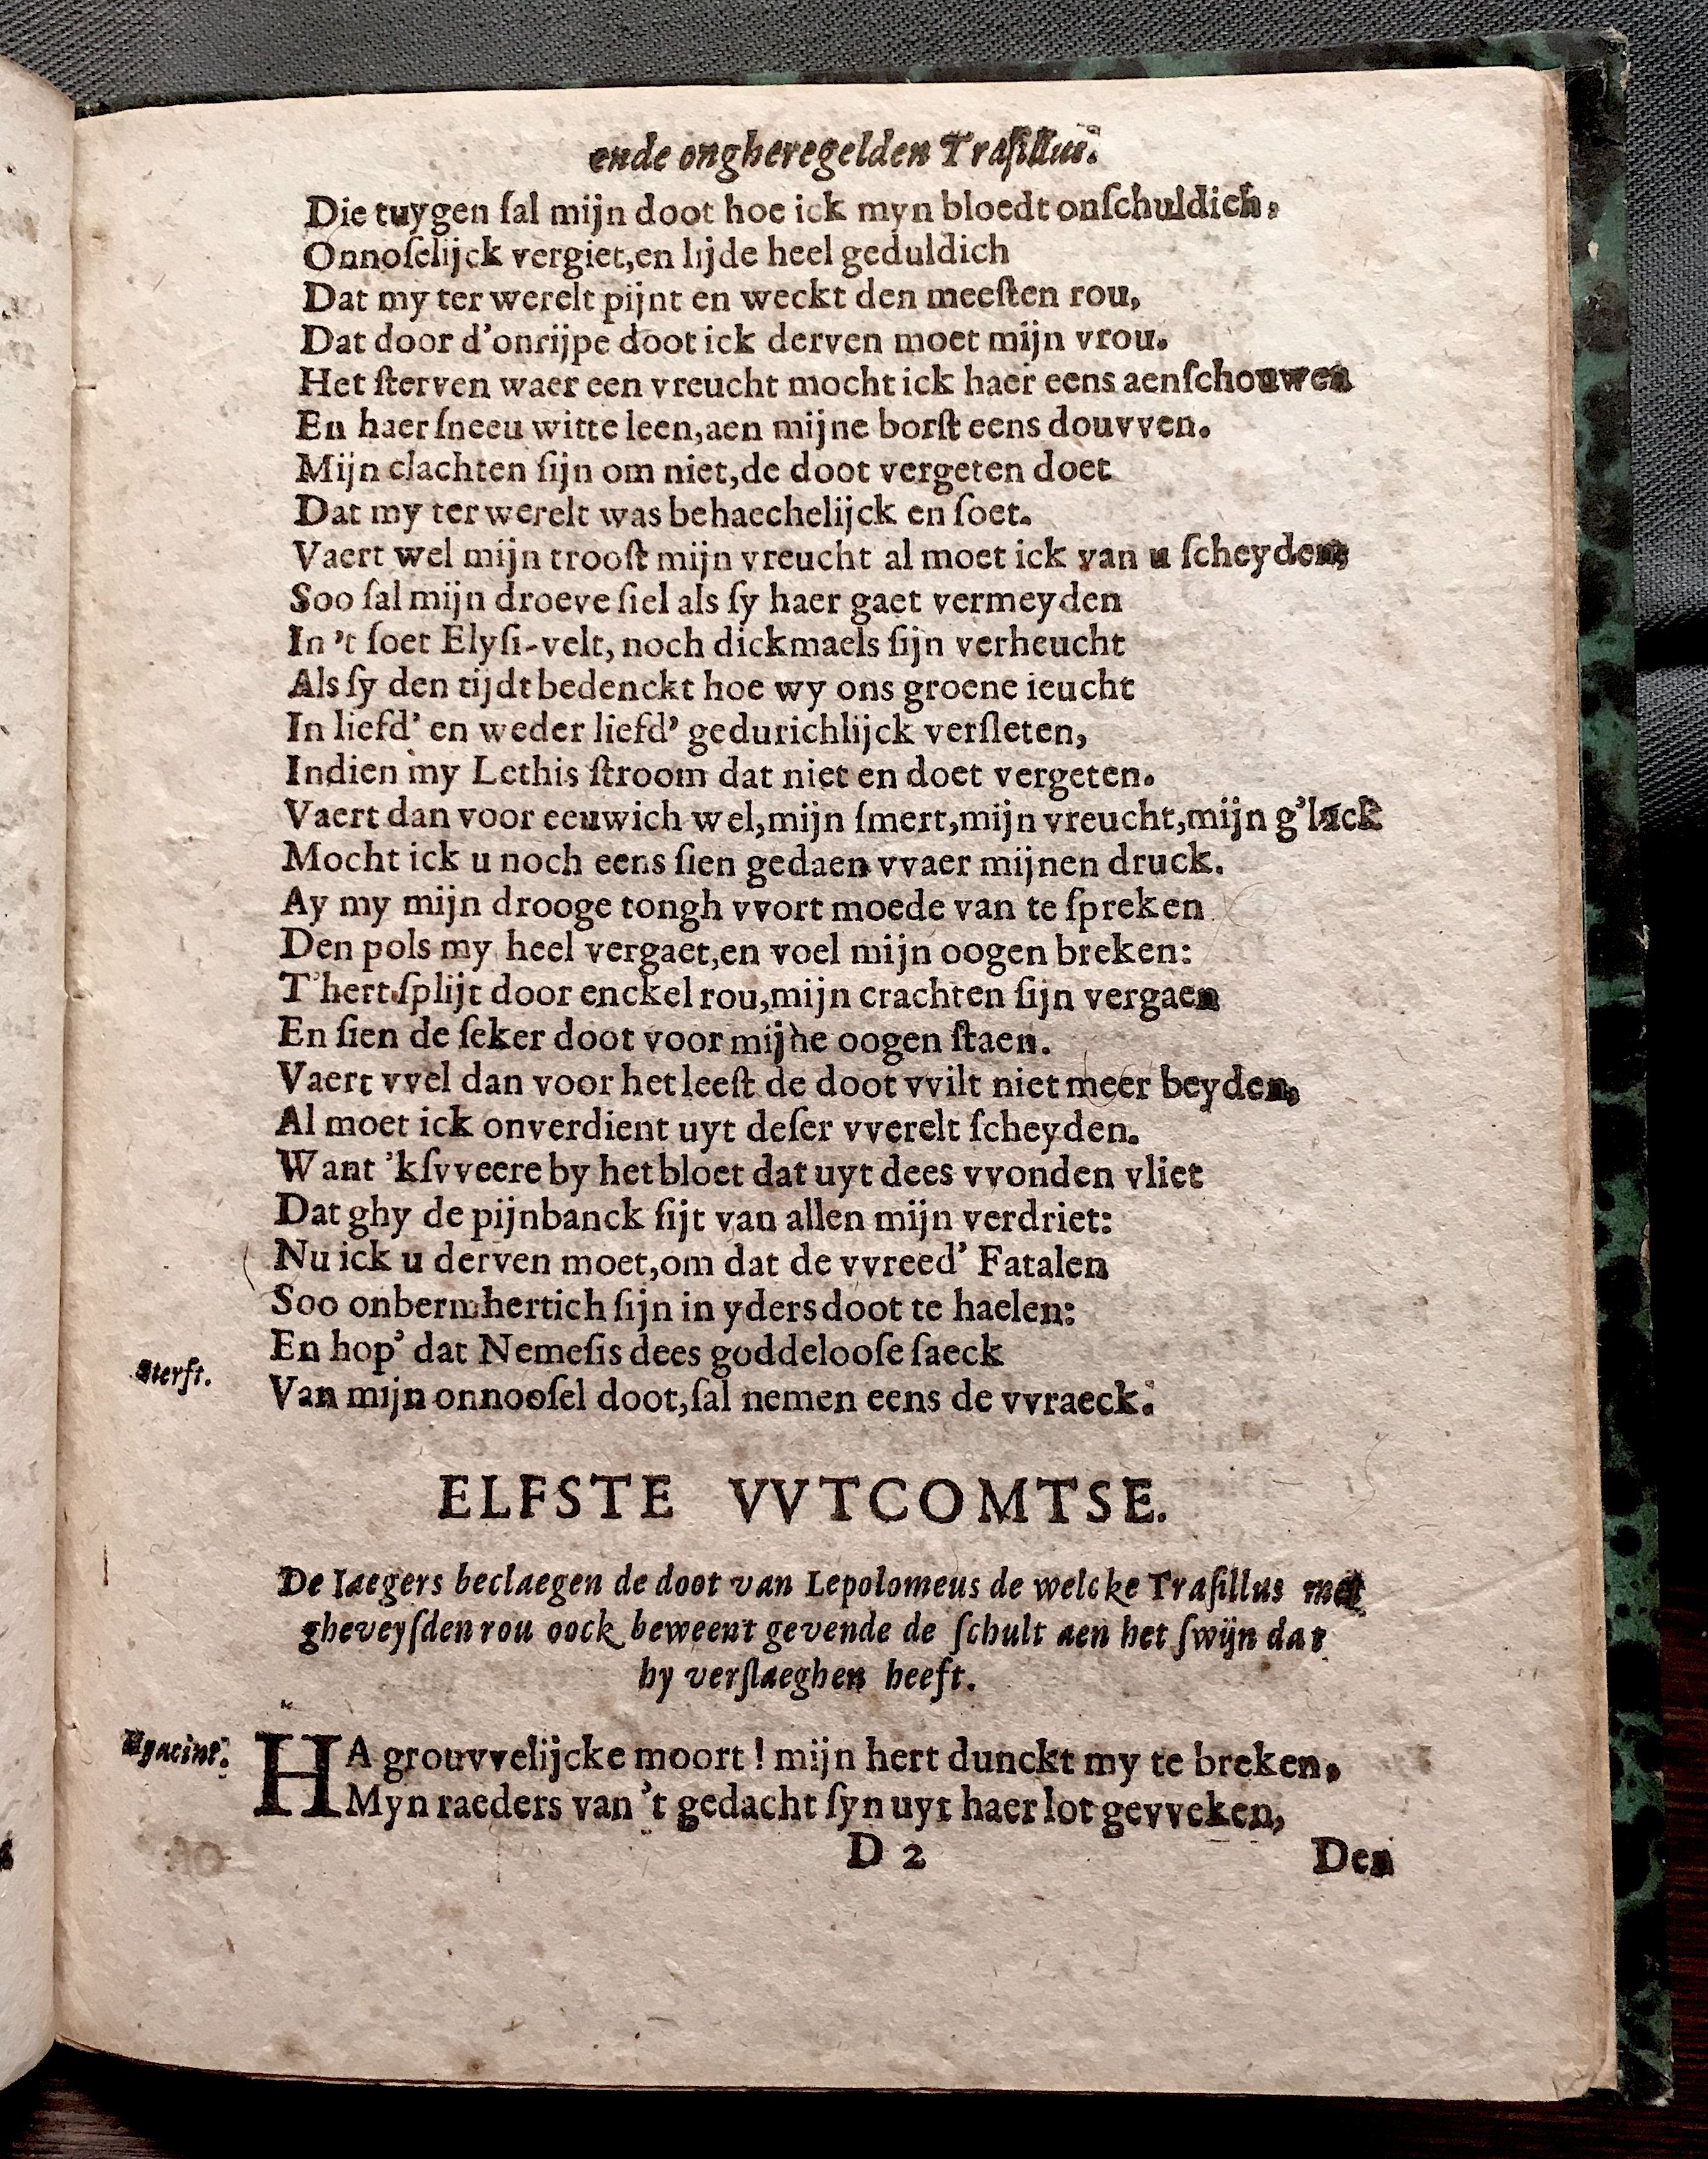 ende ongheregelden Traſillus.
Die tuygen ſal mijn doot hoe ick myn bloedt onſchuldich,
Onnoſelijck vergiet,en lijde heel geduldich
Dat my ter werelt pijnt en weckt den meeſten rou,
Dat door d'onrijpe doot ick derven moet mijn vrou.
Het ſterven waer een vreucht mocht ick haer eens aenſchouwen
En haer ſneeu witte leen,aen mijne borſt eens douvven.
Mijn clachten ſijn om niet,de doot vergeten doet
Dat my ter werelt was behaechelijck en ſoet.
Vaert wel mijn trooſt mijn vreucht al moet ick van u ſcheyden,
Soo ſal mijn droeve ſiel als ſy haer gaet vermeyden
In 't ſoet Elyſi-velt, noch dickmaels ſijn verheucht
Als ſy den tijdt bedenckt hoe wy ons groene ieucht
In liefd' en weder liefd' gedurichlijck verſleten,
Indien my Lethis ſtroom dat niet en doet vergeten.
Vaert dan voor eeuwich wel,mijn ſmert,mijn vreucht,mijn g'luck
Mocht ick u noch eens ſien gedaen vvaer mijnen druck.
Ay my mijn drooge tongh vvort moede van te ſpreken
Den pols my heel vergaet,en voel mijn oogen breken:
T'hert ſplijt door enckel rou,mijn crachten ſijn vergaen
En ſien de ſeker doot voor mijne oogen ſtaen.
Vaert vvel dan voor het leeſt de doot vvilt niet meer beyden,
Al moet ick onverdient uyt deſer vverelt ſcheyden.
Want 'kſvveere by het bloet dat uyt dees vvonden vliet
Dat ghy de pijnbanck ſijt van allen mijn verdriet:
Nu ick u derven moet,om dat de vvreed' Fatalen
Soo onbermhertich ſijn in yders doot te haelen:
En hop' dat Nemeſis dees goddelooſe ſaeck
Sterft.
Van mijn onnooſel doot,ſal nemen eens de vvraeck.
ELFSTE VVTCOMTSE.
De Iaegers beclaegen de doot van Lepolomeus de welcke Traſillus met
gheveyſden rou oock beweent gevende de ſchult aen het ſwijn dat
hy verſlaeghen heeft.
Hyacint.
HA grouvvelijcke moort ! mijn hert dunckt my te breken,
Myn raeders van 't gedacht ſyn uyt haer lot gevveken,
D 2
Den